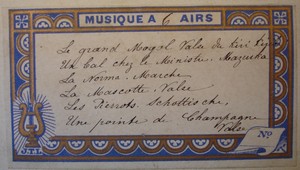 MUSIQUE A 6 AIRS
Le grand Mogol Vals de Kiri Kiri
Un bal chez le Ministre. Mazurka
La Norma. Marche
La Mascotte. Valse
Les Pierrots Schottische.
Une pointe de Champagne
Valse
No